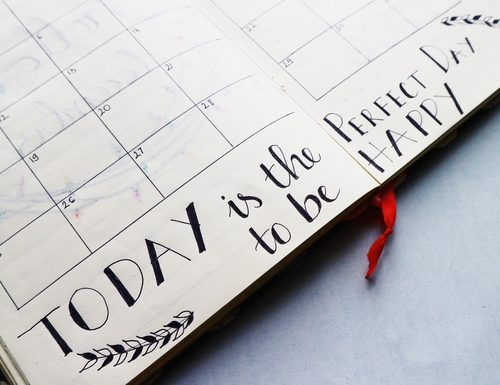 6
13
12
20
14
21
19
27
28
26
22
29
TODAY is the PERFECT DAY
to be HAPPY